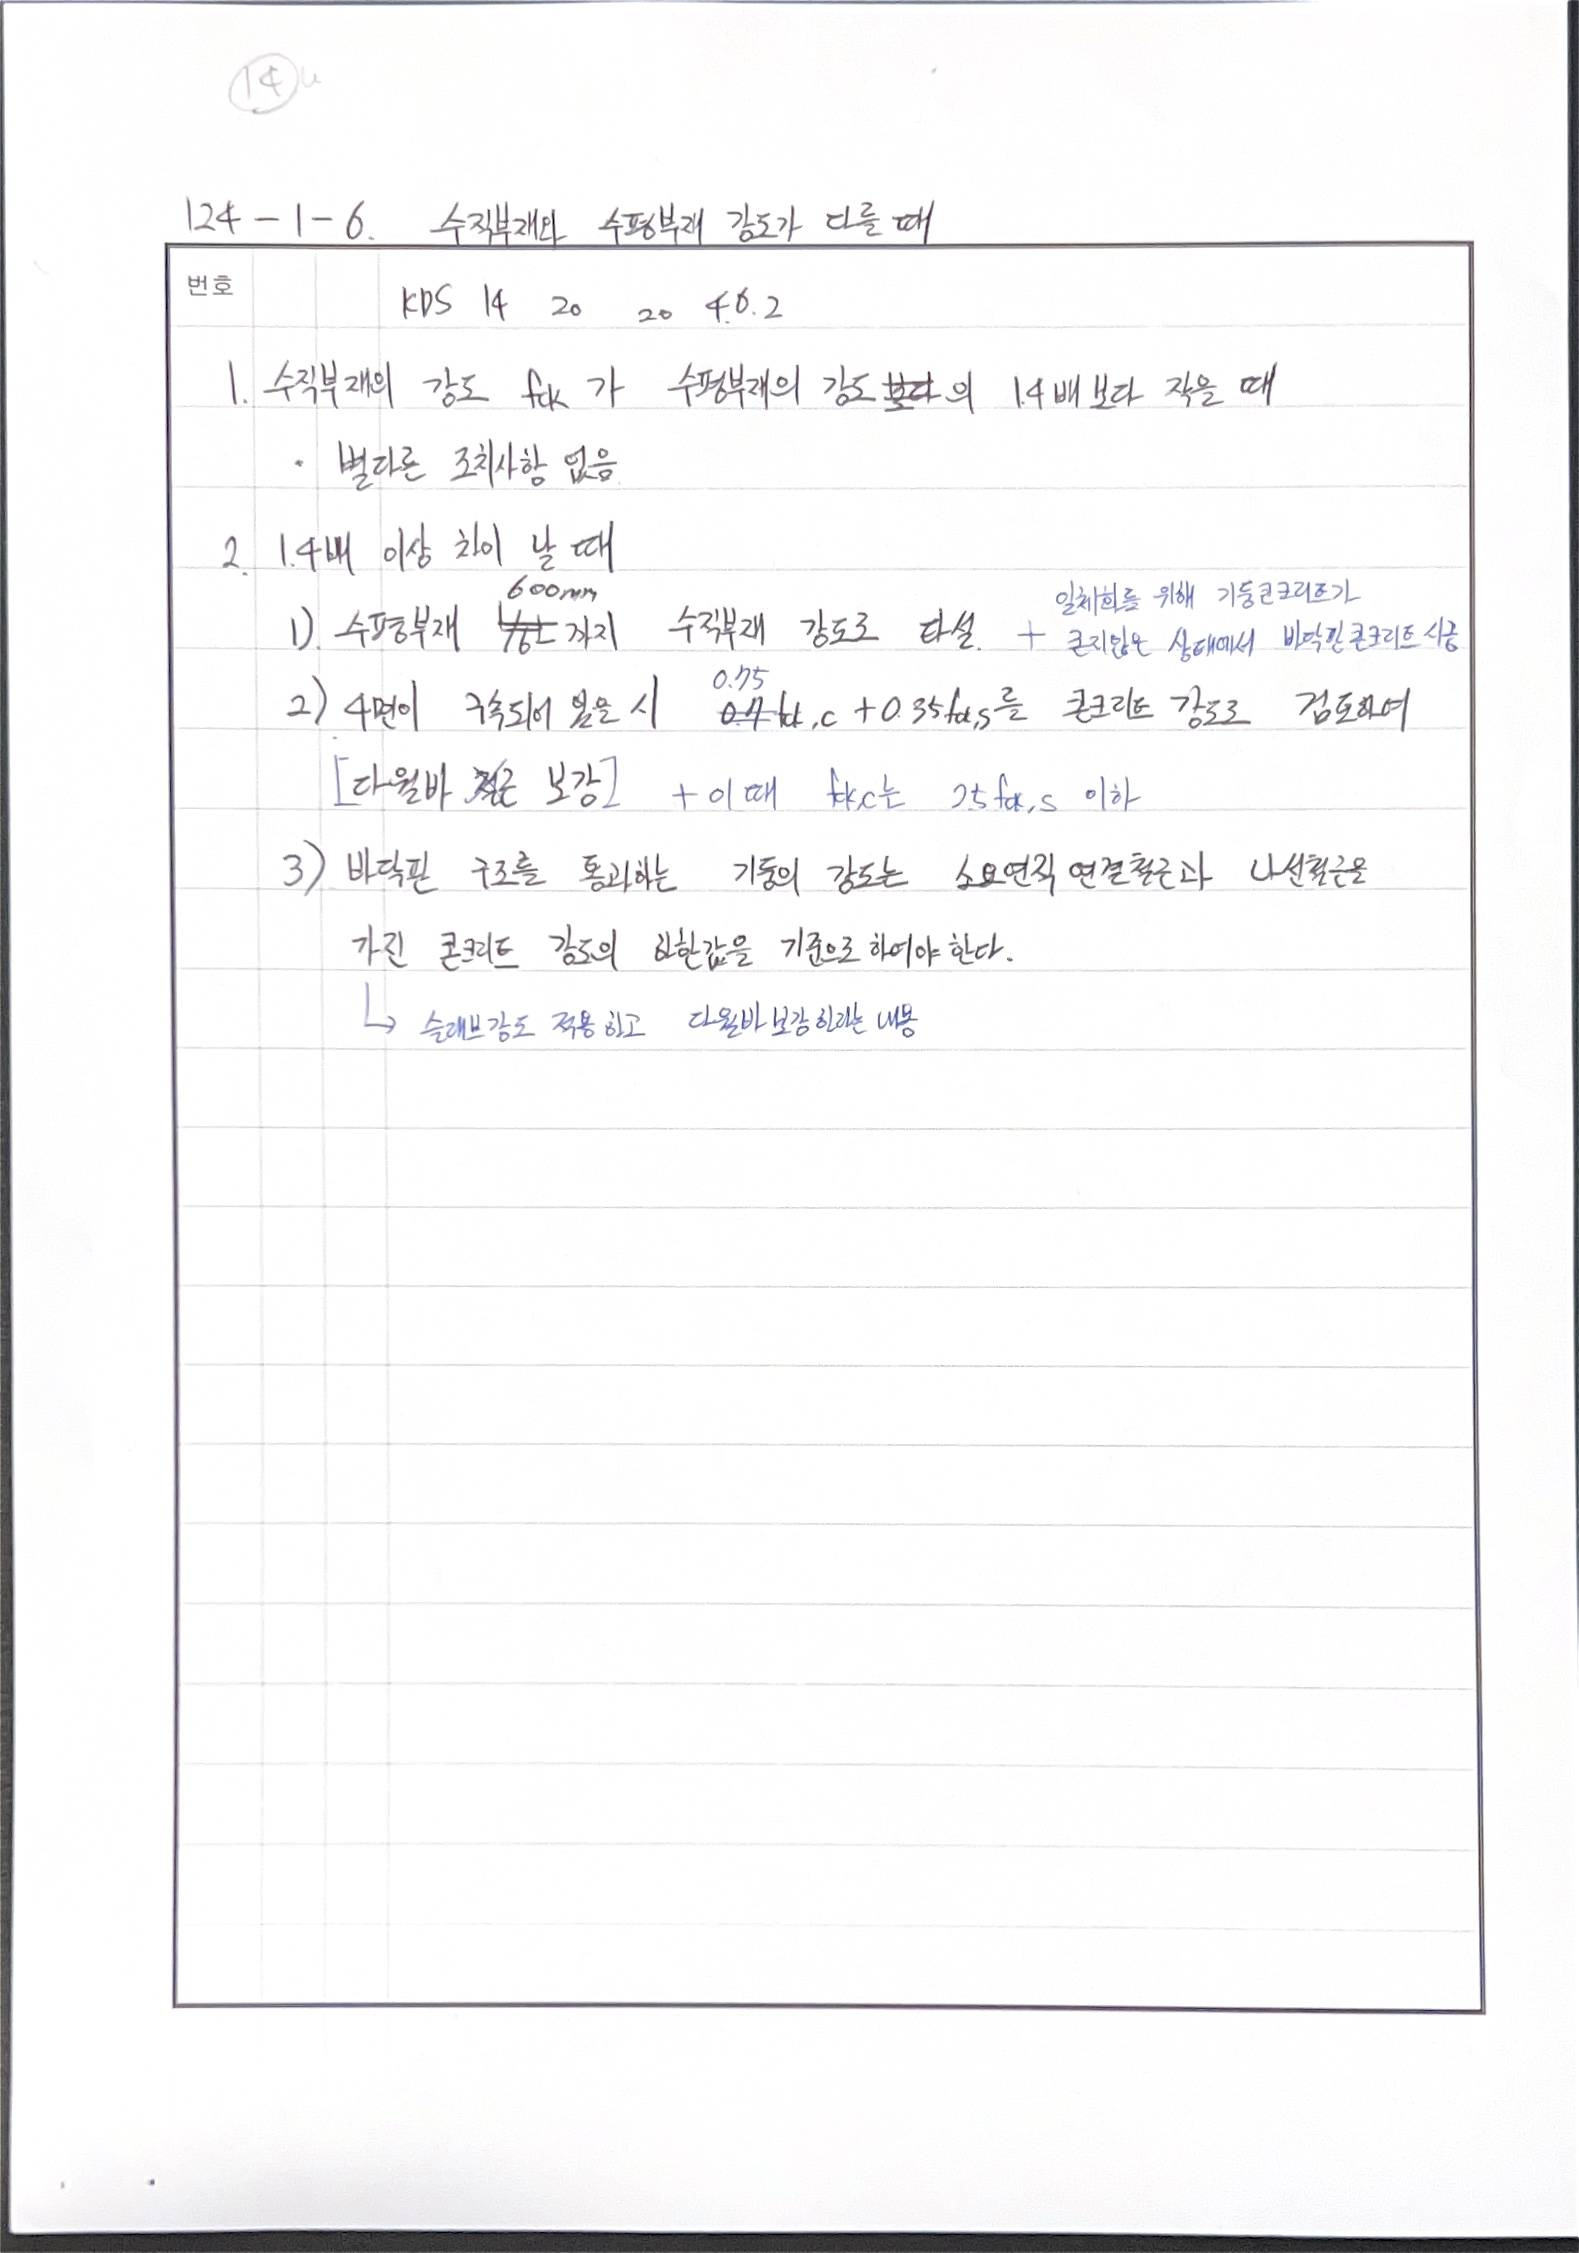 14
124-1-6. 수직부재와 수평부재 강도가 다를 때
번호
KDS 14 20 20 4.6.2
1. 수직부재의 강도 fck 가 수평부재의 강도 보다 의 1.4배 보다 작을 때
· 별다른 조치사항 없음
2. 1.4배 이상 차이 날 때
600mm
일체화를 위해 기둥콘크리트가
1) 수평부재 까지 수직부재 강도로 타설. + 굳지않은 상태에서 바닥판콘크리트 시공
0.75
2) 4면이 구속되어 있을 시 0.7 fck,c + 0.35fck,s를 콘크리트 강도로 검토하여
[다월바 보강] + 이때 fck,c는 2.5fck,s 이하
3) 바닥판 구조를 통과하는 기둥의 강도는 소요연직 연결철근과 나선철근을
가진 콘크리트 강도의 하한값을 기준으로 하여야 한다.
↳ 슬래브강도 적용하고 다월바보강하라는 내용